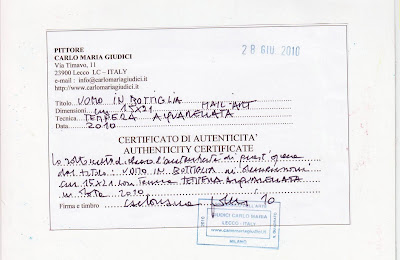 PITTORE
28 GIU. 2010
CARLO MARIA GIUDICI
Via Timavo, 11
23900 Lecco LC – ITALY
e-mail : info@carlomariagiudici.it
http://www.carlomariagiudici.it
Titolo VOMO IN BOTTIGLIA MAIL-ART
Dimensioni cm 15x21
Tecnica TEMPERA AQUARELLATA
Data 2010
CERTIFICATO DI AUTENTICITA'
AUTHENTICITY CERTIFICATE
Io sottoscritto dichiaro l'autenticità di quest'opera
dal titolo: VOMO IN BOTTIGLIA di dimensioni
cm 15x21 con Tecnica TEMPERA AQUARELLATA
in data 2010
Firma e timbro '10
GIUDICI CARLO MARIA
LECCO - ITALY
www.carlomariagiudici.it
MILANO